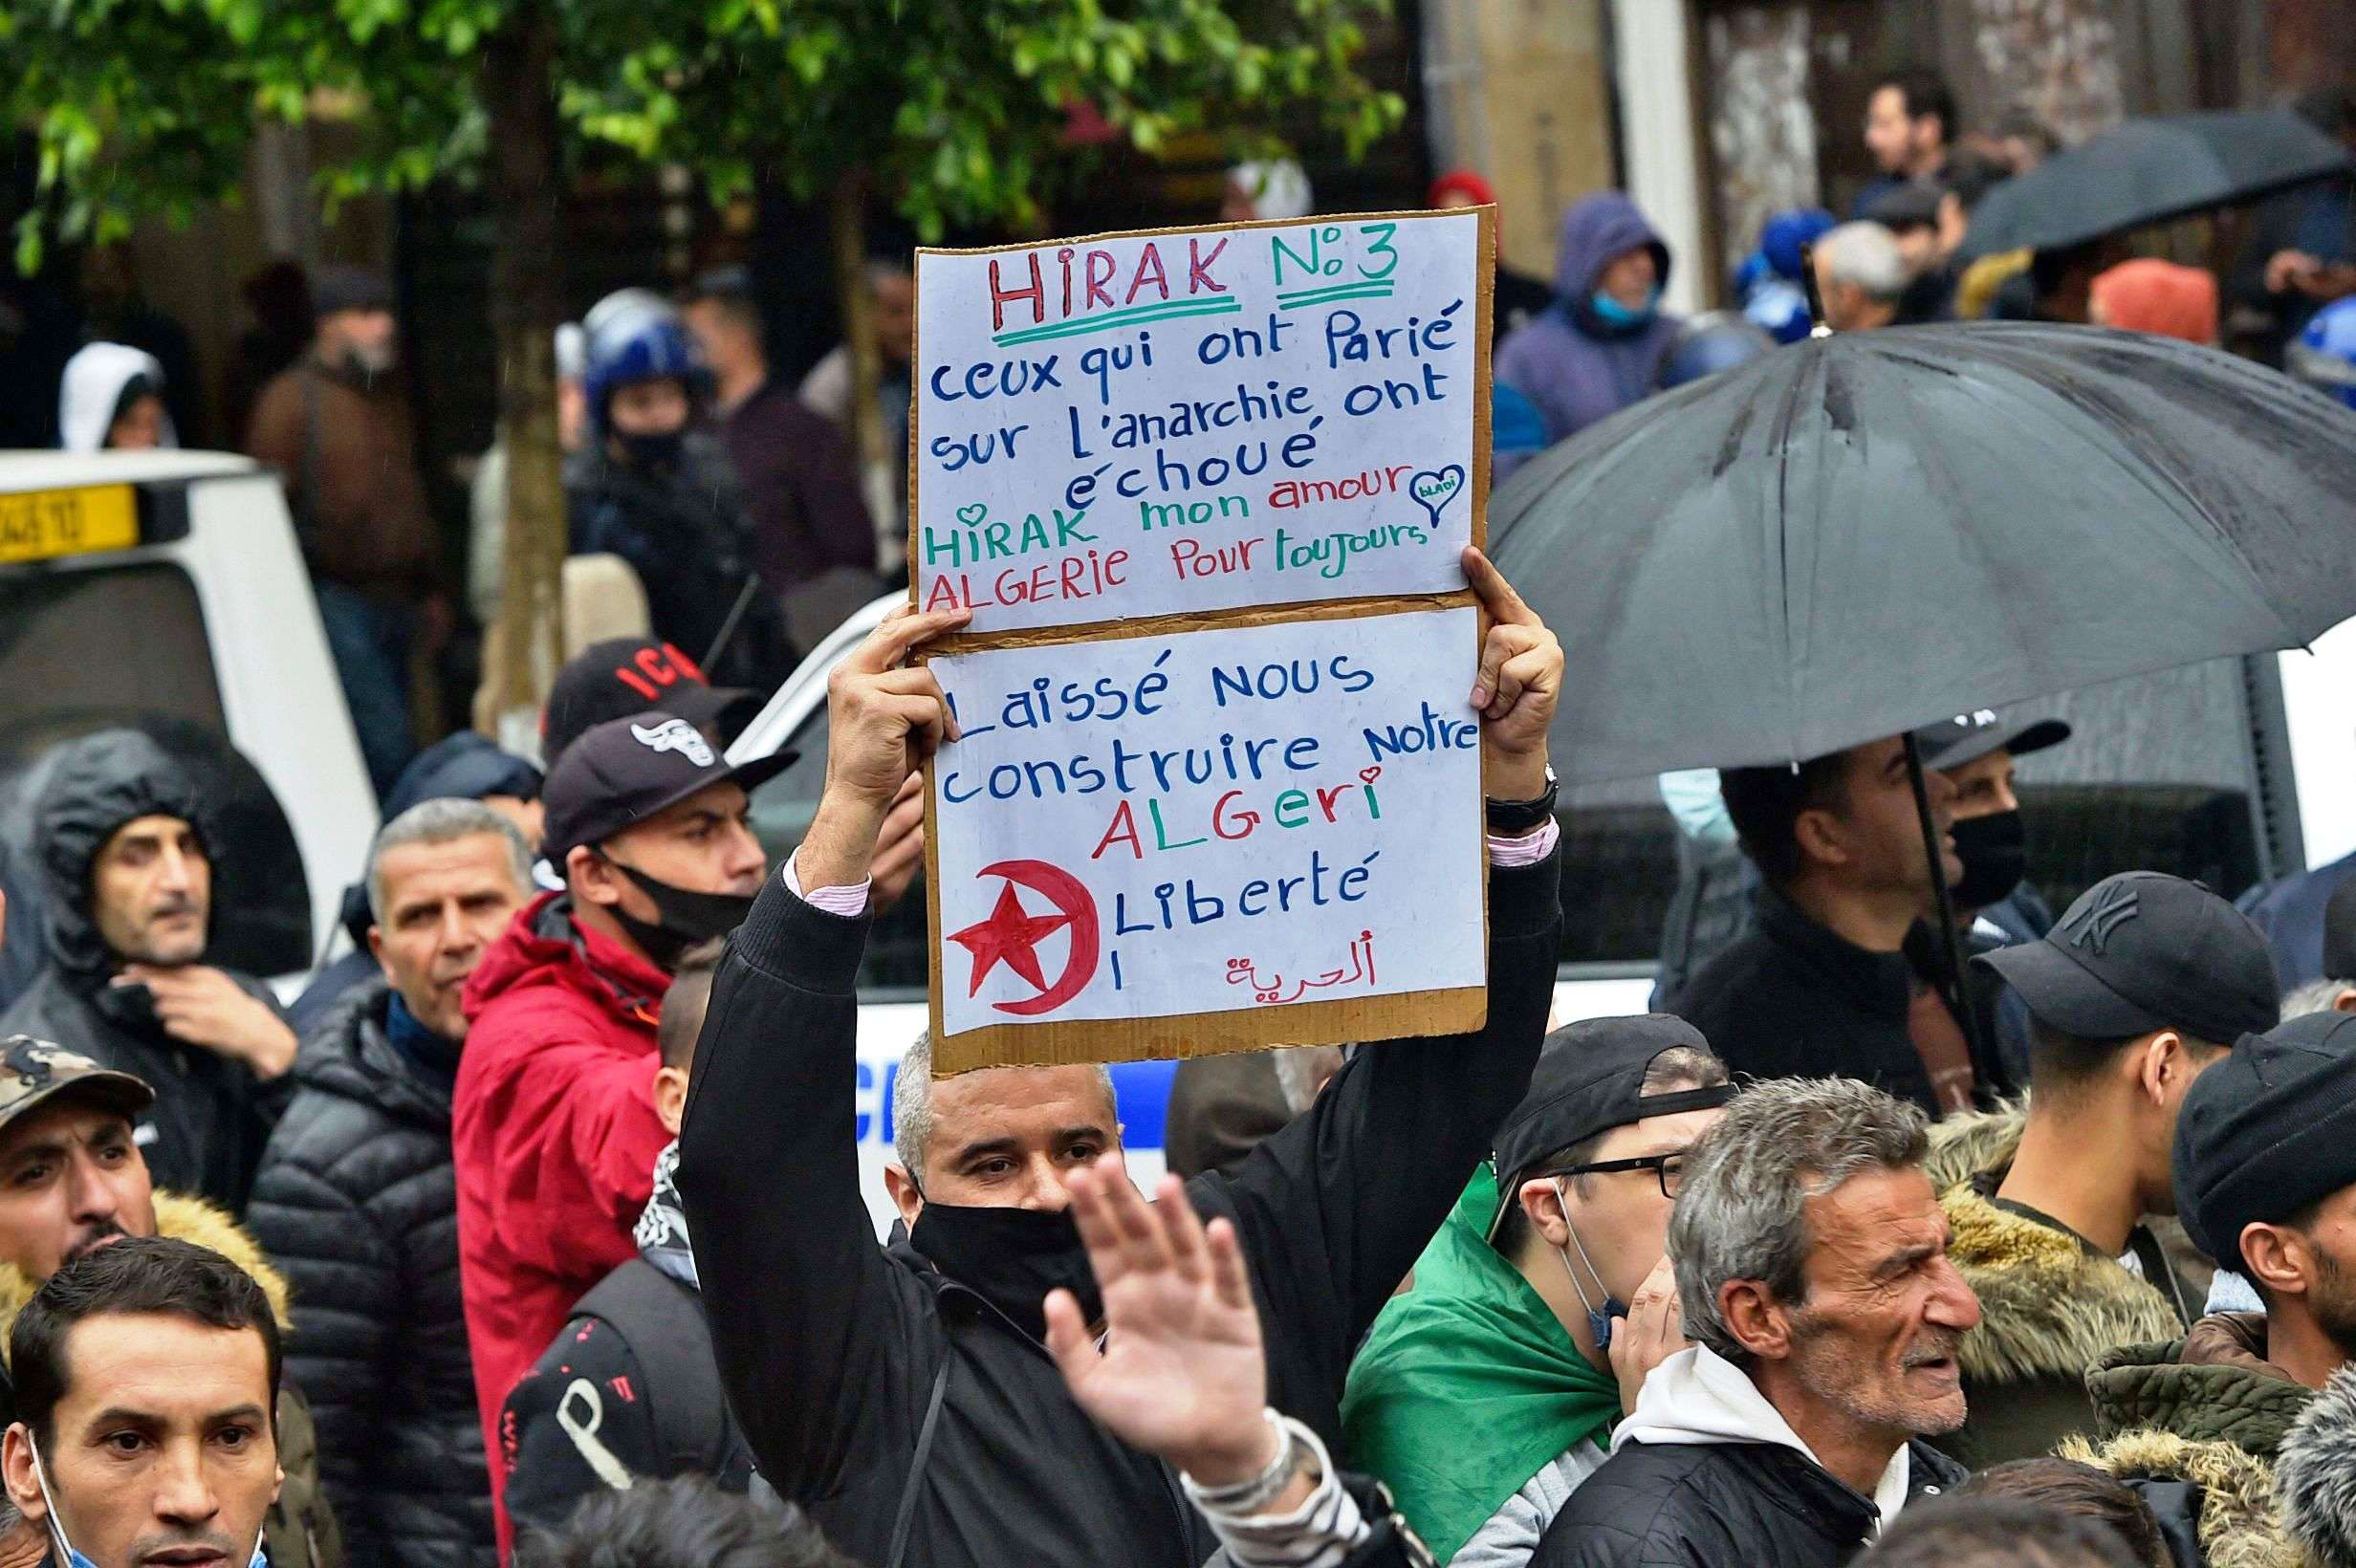 HiRAK N: 3
ceux qui ont Parié
sur l'anarchie, ont
échoué
HiRAK mon amour
bLADi
ALGERie Pour toujours
Laissé NOUS
construire Notre
ALGeri
Liberté
ألحرية
ICON
NY